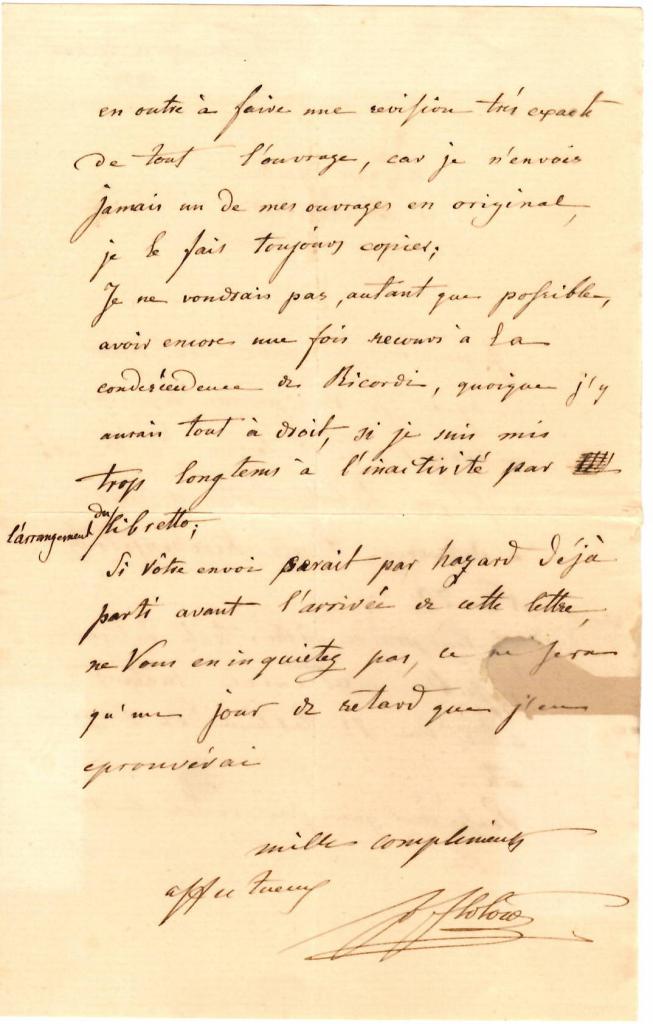 en outre à faire une revision très exacte
de tout l'ouvrage, car je n'envois
jamais un de mes ouvrages en original,
je le fais toujours copier;
Je ne voudrais pas, autant que possible,
avoir encore une fois recours à la
condescendence de Ricordi, quoique j'y
aurais tout à droit, si je suis mis
trop longtems à l'inactivité par
l'arrangement du libretto;
Si vôtre envoi serait par hazard déjà
parti avant l'arrivée de cette lettre,
ne Vous en inquietez pas, ce ne sera
qu'un jour de retard que j'en
eprouverai
mille compliments
affectueux
Flotow